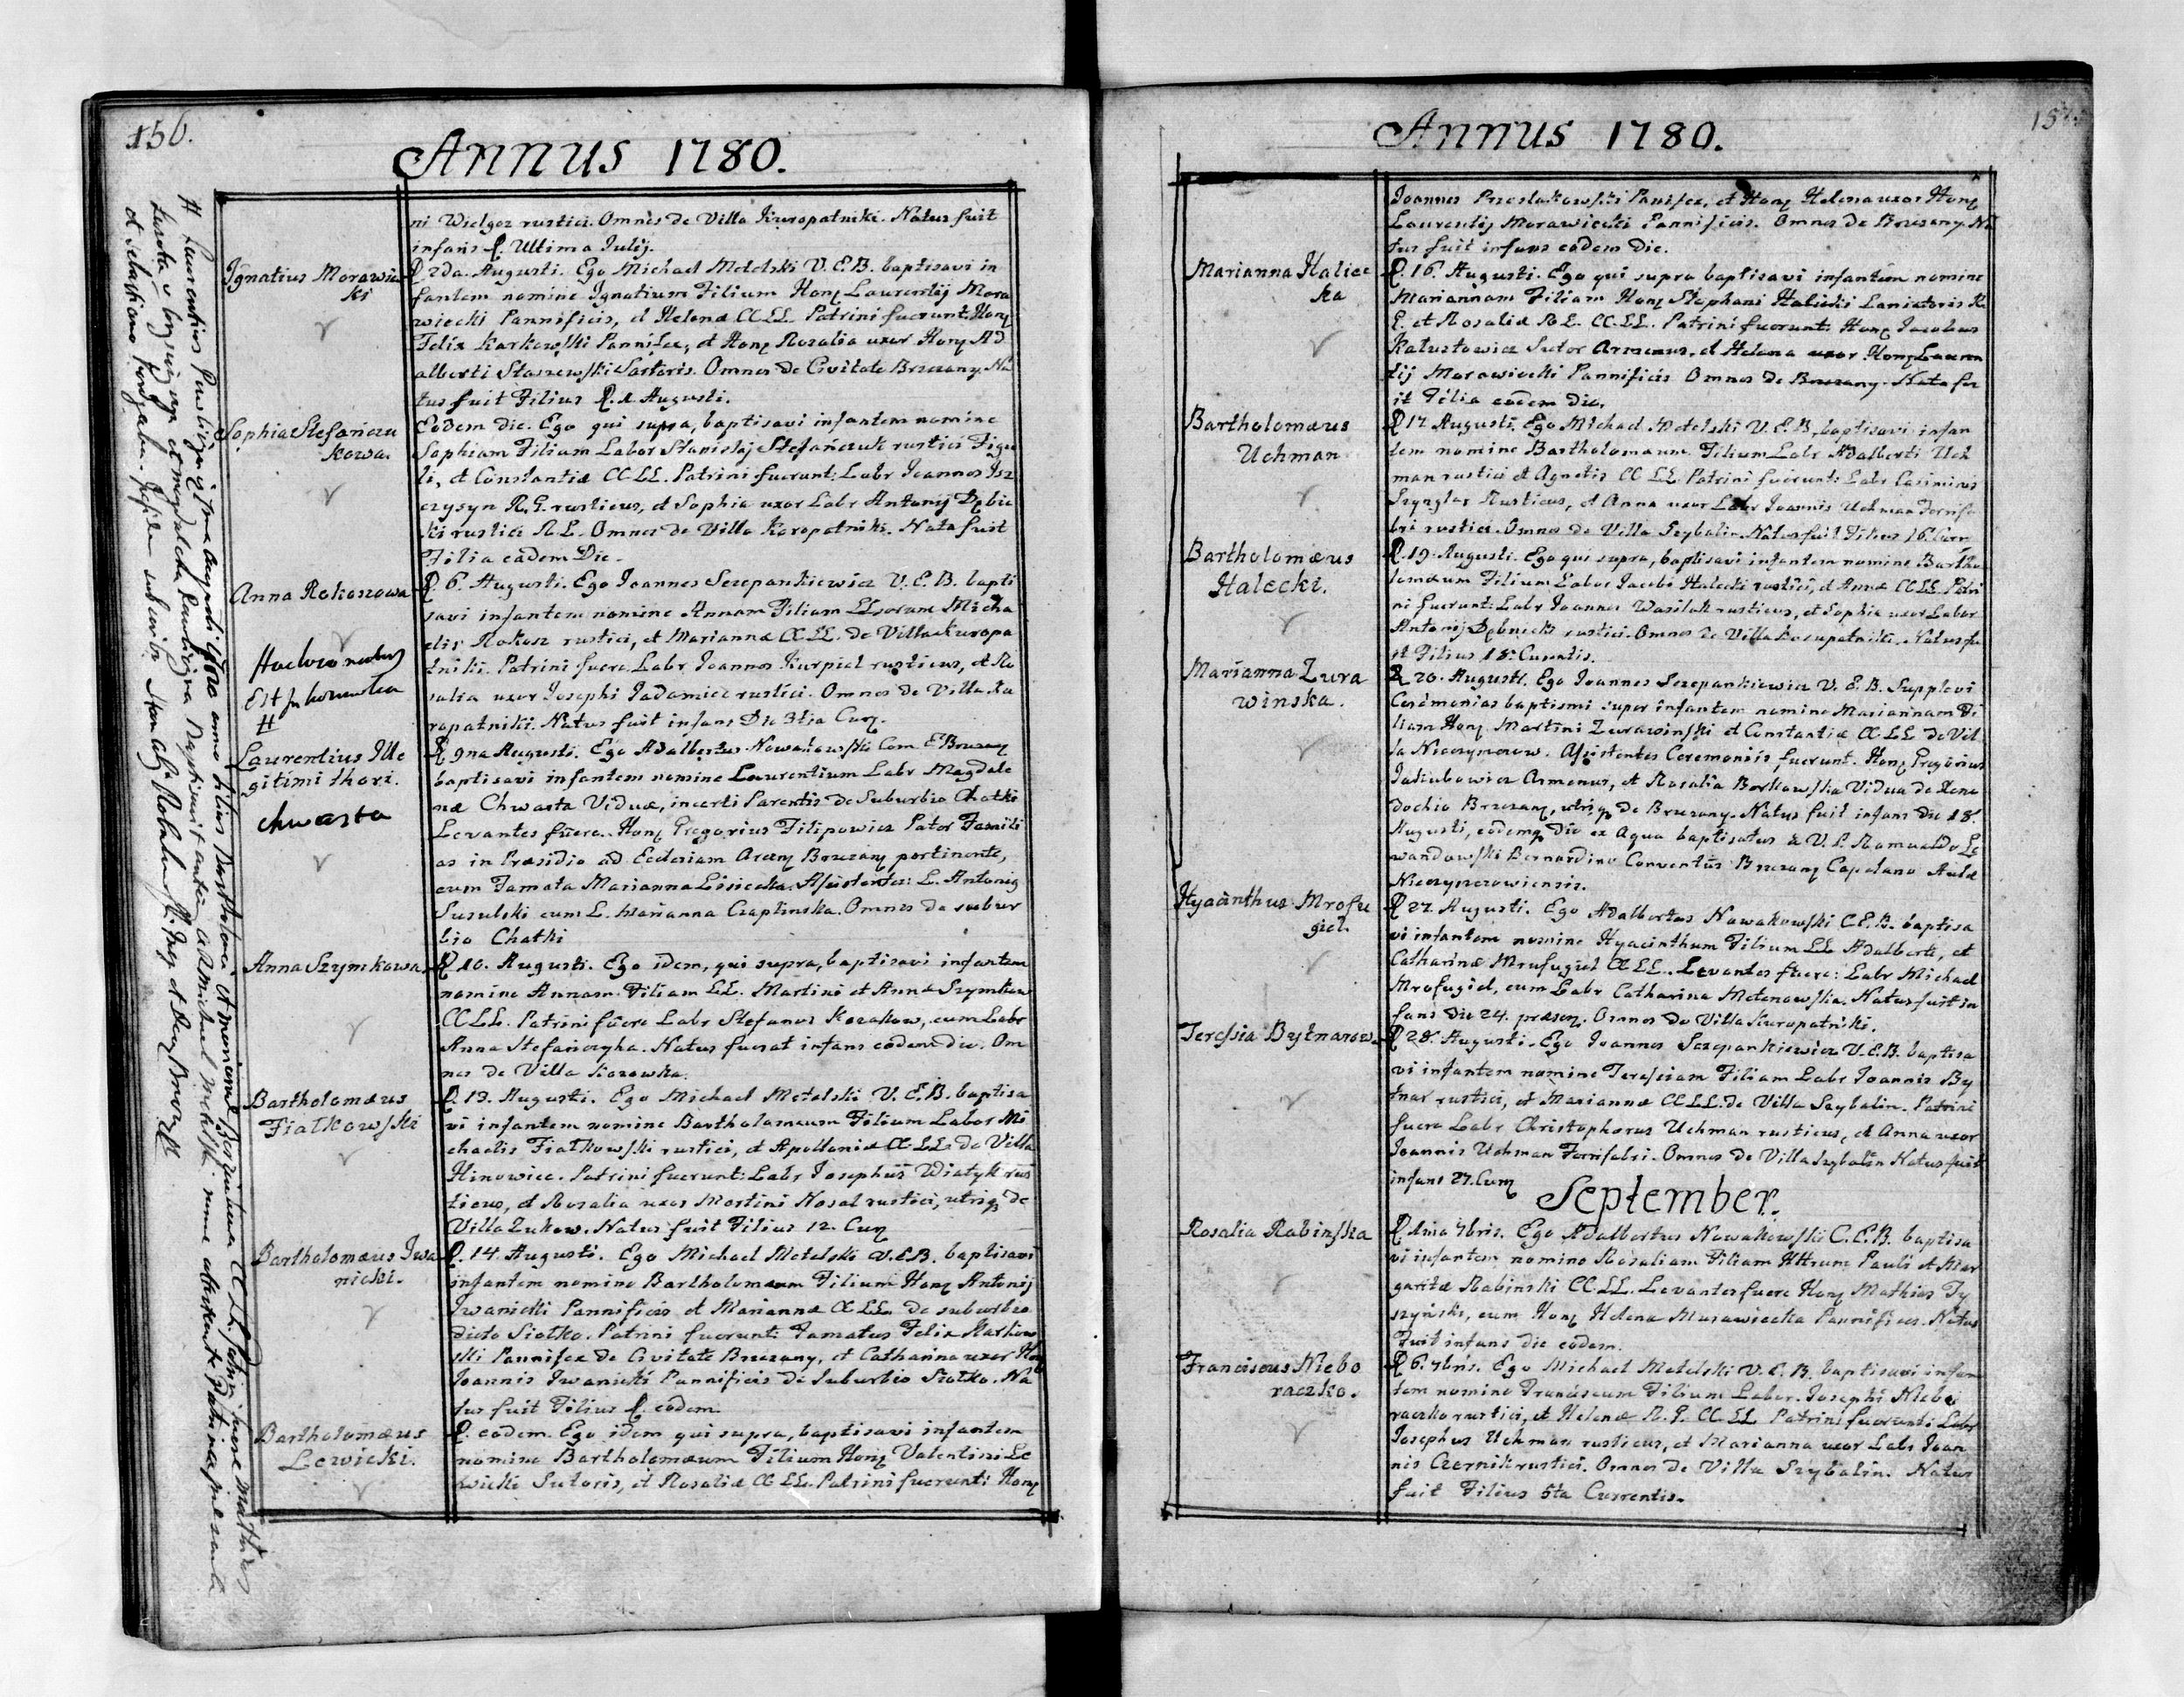 156.
Annus 1780.
ni Wielgoz rustici. Omnes de Villa Kuropatniki. Natus fuit
infans D. Ultima Julij.
Ignatius Morawic
ki
D 2da. Augusti. Ego Michael Metelski V. E. B. baptisavi in
fantem nomine Ignatium Filium Hon Laurentij Mora
wiecki Pannificis, et Helenæ CC LL. Patrini fuerunt: Hon
Felix Karkowski Pannifex, et Hon Rosalia uxor Hon Ad
alberti Staszewski Sartoris. Omnes de Civitate Brzezany. Na
tus fuit Filius D. 1 Augusti.
Sophia Stefańczu
kowa.
Eodem die. Ego qui supra, baptisavi infantem nomine
Sophiam Filiam Labor Stanislaj Stefańczuk rustici Figu
li, et Constantiæ CC LL. Patrini fuerunt: Labr Joannes
czysyn R. G. rusticus, et Sophia uxor Labr Antonij Dębic
ki rustici R. L. Omnes de Villa Koropatniki. Nata fuit
Filia eadem Die.
Anna Rokoszowa
D. 6. Augusti. Ego Joannes Szczepankiewicz V. E. B. bapti
savi infantem nomine Annam Filiam LLorum Micha
elis Rokosz rustici, et Mariannæ CC LL. de Villa Kuropa
tniki. Patrini fuere Labr Joannes Kurpiel rusticus, et Ro
salia uxor Josephi Jadamiec rustici. Omnes de Villa Ku
ropatniki. Natus fuit infans Die 3tia Curr.
Est
#
Laurentius Ille
gitimi thori.
chwasta
D 9na Augusti. Ego Adalbertus Nowakowski Com E Brzezan
baptisavi infantem nomine Laurentium Labr Magdale
næ Chwasta Viduæ, incerti Parentis de Suburbio Chatki
Levantes fuere. Hon Gregorius Filipowicz Pator Famili
as in Præsidio ad Ecclesiam Brzezan pertinente,
cum Famata Marianna Lisiecka. Assistentes: L. Antonig
Suzulski cum L. Marianna Czaplinska. Omnes de subur
bio Chatki
Anna Szymkowa
D 10. Augusti. Ego idem, qui supra, baptisavi infantem
nomine Annam. Filiam LL. Martini et Annæ Szymkow
CC LL. Patrini fuere Labr Stefanus Kozakow, cum Labr
Anna Stefańczyha. Natus fuerat infans eodem die. Om
nes de Villa Kozowka.
Bartholomæus
Fiałkowski
D. 13. Augusti. Ego Michael Metelski V. E. B. baptisa
vi infantem nomine Bartholomæum Filium Labor Mi
chaelis Fiałkowski rustici, et Apolloniæ CC LL de Villa
Hinowice. Patrini fuerunt: Labr Josephus Wiatyk rus
ticus, et Rosalia uxor Martini Nosal rustici, utrig de
Villa Zukow. Natus fuit Filius 12. Curr
Bartholomæus Jwa
nicki.
D. 14. Augusti. Ego Michael Metelski V. E. B. baptisavi
infantem nomine Bartholomæum Filium Hon Antonij
Jwanicki Pannificis et Mariannæ CC LL. de suburbio
dicto Siołko. Patrini fuerunt: Famatus Felix Karkow
ski Pannifex de Civitate Brzezany, et Catharina uxor Hon
Joannis Jwanicki Pannificis de Suburbio Siołko. Na
tus fuit Filius D. eodem.
Bartholomæus
Lewicki.
D. eodem. Ego idem qui supra, baptisavi infantem
nomine Bartholomæum Filium Hon Valentini Le
wicki Sutoris, et Rosaliæ CC LL. Patrini fuerunt: Hon
# Laurentius anno Filius CC LL. Patrini fuere Mathias
et Magdalena Baptisavit autem Michael Metelski
et Sebastiano
Annus 1780.
Joannes Przesłakowski Panifex, et Hon Helena uxor Hon
Laurentij Morawiecki Pannificis. Omnes de Brzezany. Na
tus fuit infans eodem die.
Marianna Haliec
ka
D. 16. Augusti. Ego qui supra baptisavi infantem nomine
Mariannam Filiam Hon Stephani Halicki Laniatoris R
G. et Rosaliæ R L. CC. LL. Patrini fuerunt: Hon Jacobus
Katustowicz Sutor Armenus, et Helena uxor Hon Lauren
tij Morawiecki Pannificis Omnes de Brzezany. Nata fu
it Filia eadem die.
Bartholomæus
Uchman
D 17 Augusti. Ego Michael Metelski V. E. B. baptisavi infan
tem nomine Bartholomæum Filium Labr Adalberti Uch
man rustici et Agnetis CC LL. Patrini fuerunt: Labr Casimirus
Szynglar Rusticus, et Anna uxor Labr Joannis Uchman Ferrifa
bri rustici. Omnes de Villa Szybalin. Natus fuit Filius 16. Curr
Bartholomæus
Halecki.
D. 19. Augusti. Ego qui supra, baptisavi infantem nomine Bartho
lomæum Filium Labor Jacobi Halecki rustici, et Annæ CC LL. Patri
ni fuerunt: Labr Joannes Wasilok rusticus, et Sophia uxor Labor
Antonij Dębnicki rustici. Omnes de Villa Kurupatniki. Natus fu
it Filius 18. Currentis.
Marianna Zura
winska.
D 20. Augusti. Ego Joannes Szczepankiewicz V. E. B. Supplevi
Ceremonias baptismi super infantem nomine Mariannam Fi
liam Hon Martini Zurawinski et Constantiæ CC LL de Vil
la Nieczynorow. Assistentes Ceremoniis fuerunt. Hon Gregorius
Jakubowicz Armenus, et Rosalia Borkowska Vidua de Xeno
dochio Brzezan, utrig de Brzezany. Natus fuit infans die 18.
Augusti, eodemq die ex Aqua baptisatus à V. P. Romualdo Le
wandowski Bernardino Conventûs Brzezan Capelano Aulæ
Nieczynorowiensis.
Hyacinthus Mrofu
giel.
D 27. Augusti. Ego Adalbertus Nowakowski C. E. B. baptisa
vi infantem nomine Hyacinthum Filium LL Adalberti, et
Catharinæ Mrufugiel CC LL. Levantes fuere: Labr Michael
Mrofugiel, cum Labr Catharina Metenowska. Natus fuit in
fans die 24. præsen. Omnes de Villa Kuropatniki.
Teressia Bytnarowa
D 28. Augusti. Ego Joannes Szczepankiewicz V. E. B. baptisa
vi infantem nomine Teressiam Filiam Labr Joannis By
tnar rustici, et Mariannæ CC LL. de Villa Szybalin. Patrini
fuere Labr Christophorus Uchman rusticus, et Anna uxor
Joannis Uchman Ferrifabri. Omnes de Villa Szybalin Natus fuit
infans 27. Curr
September.
Rosalia Rabinska
D. 1ma 7bris. Ego Adalbertus Nowakowski C. E. B. baptisa
vi infantem nomine Rosaliam Filiam Pauli et Mar
garitæ Rabinski CC. LL. Levantes fuere Hon Mathias Ty
szyński, cum Hon Helena Murawiecka Pannifices. Natus
Fuit infans die eodem.
Franciscus Niebo
raczko.
D 6. 7bris. Ego Michael Metelski V. E. B. baptisavi infan
tem nomine Franciscum Filium Labor. Josephi Niebo
raczko rustici, et Helenæ R. G. CC. LL Patrini fuerunt: Labr
Josephus Uchman rusticus, et Marianna uxor Labr Joan
nis Czernik rustici. Omnes de Villa Szybalin. Natus
fuit Filius 5ta Currentis.